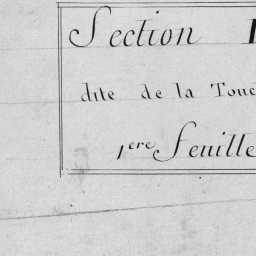 Section
dite de la Touc
1ere Feuille